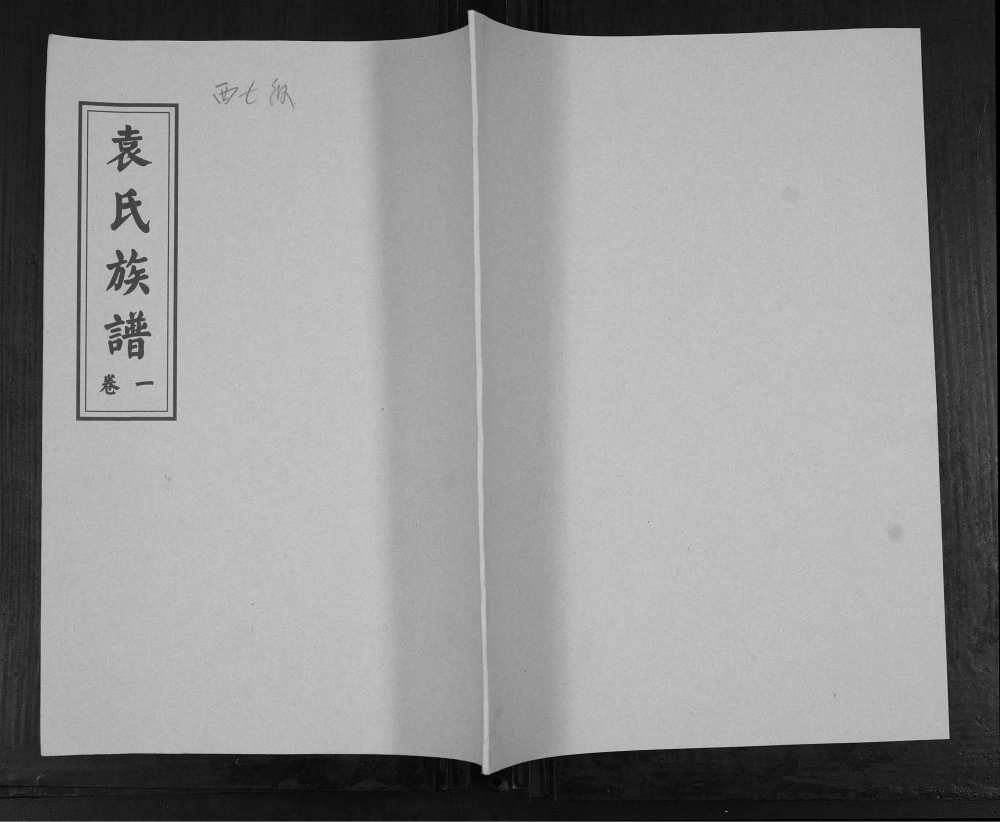 袁氏族譜
卷一
西七